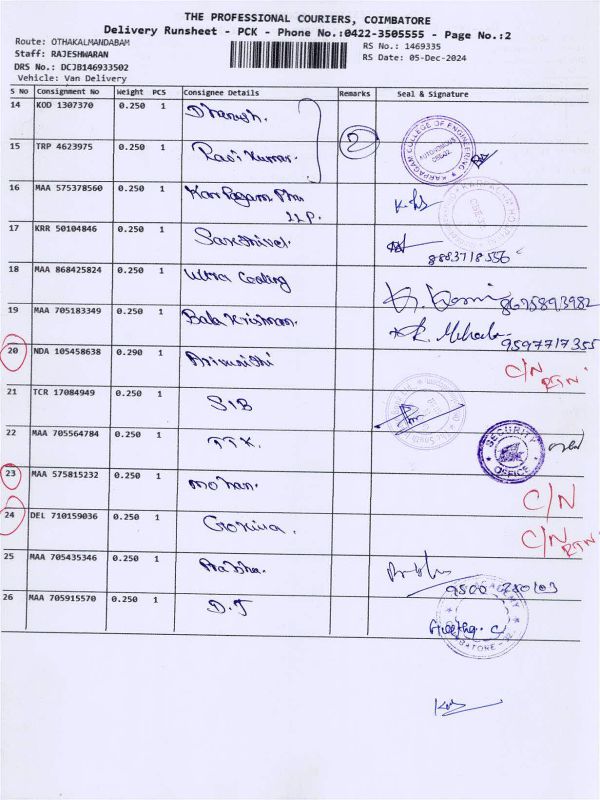 THE PROFESSIONAL COURIERS, COIMBATORE
Delivery Runsheet - PCK - Phone No.:0422-3505555 - Page No.:2
Route: OTHAKALMANDABAM
Staff: RAJESHWARAN
DRS No.: DCJB146933502
Vehicle: Van Delivery
RS No.: 1469335
RS Date: 05-Dec-2024
S No Consignment No Weight PCS Consignee Details Remarks Seal & Signature
14 KOD 1307370 0.250 1 Dhanush.
2
KARPAGAM COLLEGE OF ENGINEERING
AUTONOMOUS
15 TRP 4623975 0.250 1 Ravi Kumar.
16 MAA 575378560 0.250 1 Karpagam Phm
LLP.
17 KRR 50104846 0.250 1 Sakthivel.
8883718556
18 MAA 868425824 0.250 1 Ultra Cooling
8675893982
19 MAA 705183349 0.250 1 Bala Krishnan.
9597717355
20 NDA 105458638 0.290 1 C/N
RTN
21 TCR 17084949 0.250 1 SIB
22 MAA 705564784 0.250 1 TTK.
SECURITY
OFFICE
23 MAA 575815232 0.250 1 Mohan. C/N
24 DEL 710159036 0.250 1 C/N
RTN
25 MAA 705435346 0.250 1 Prabha.
26 MAA 705915570 0.250 1 D.J
ACADEMY
Geetha. C